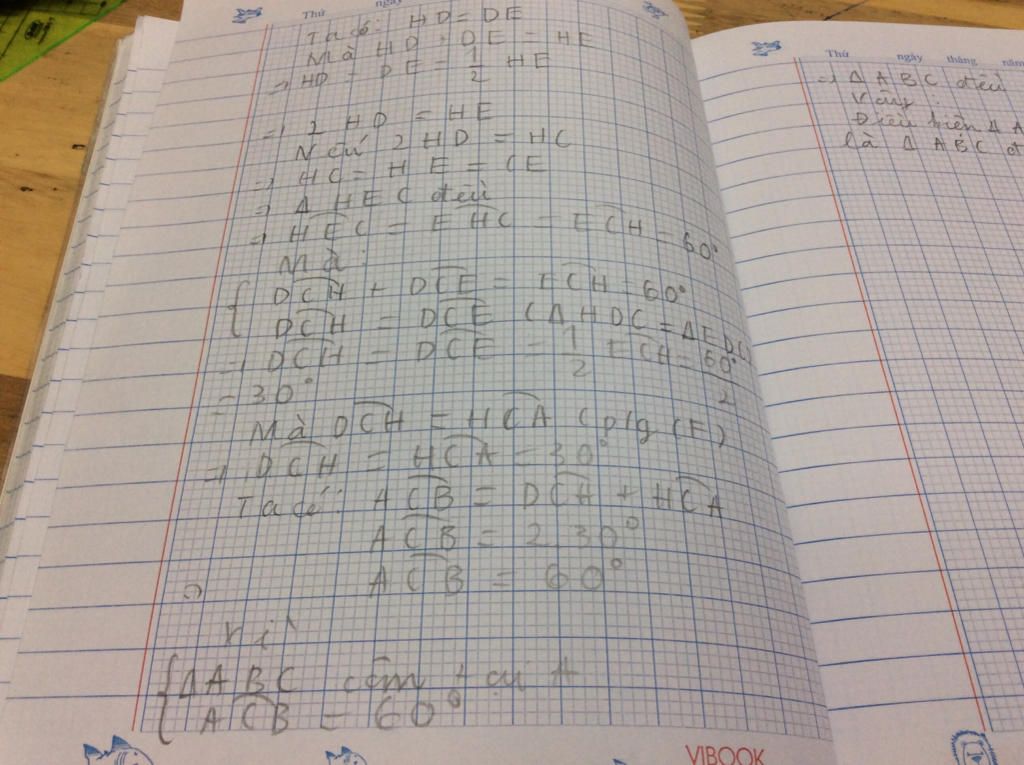 Thứ ngày
Ta có: HD = DE
Mà HD + DE = HE
→ HD = DE = 1/2 HE
→ 2 HD = HE
Nếu 2 HD = HC
→ HC = HE = CE
→ Δ HEC đều
→ HEC = EHC = ECH = 60°
Mà:
{ DCH + DCE = ECH = 60°
DCH = DCE (Δ HDC = Δ EDC)
→ DCH = DCE = 1/2 ECH = 60°/2
= 30°
Mà DCH = HCA (p/g CF)
→ DCH = HCA = 30°
Ta có: ACB = DCH + HCA
ACB = 2.30°
ACB = 60°
Vì
{ Δ ABC cân tại A
ACB = 60°
VIBOOK
Thứ ngày tháng năm
→ Δ ABC đều
Vậy:
Điều kiện Δ A
là Δ ABC đ